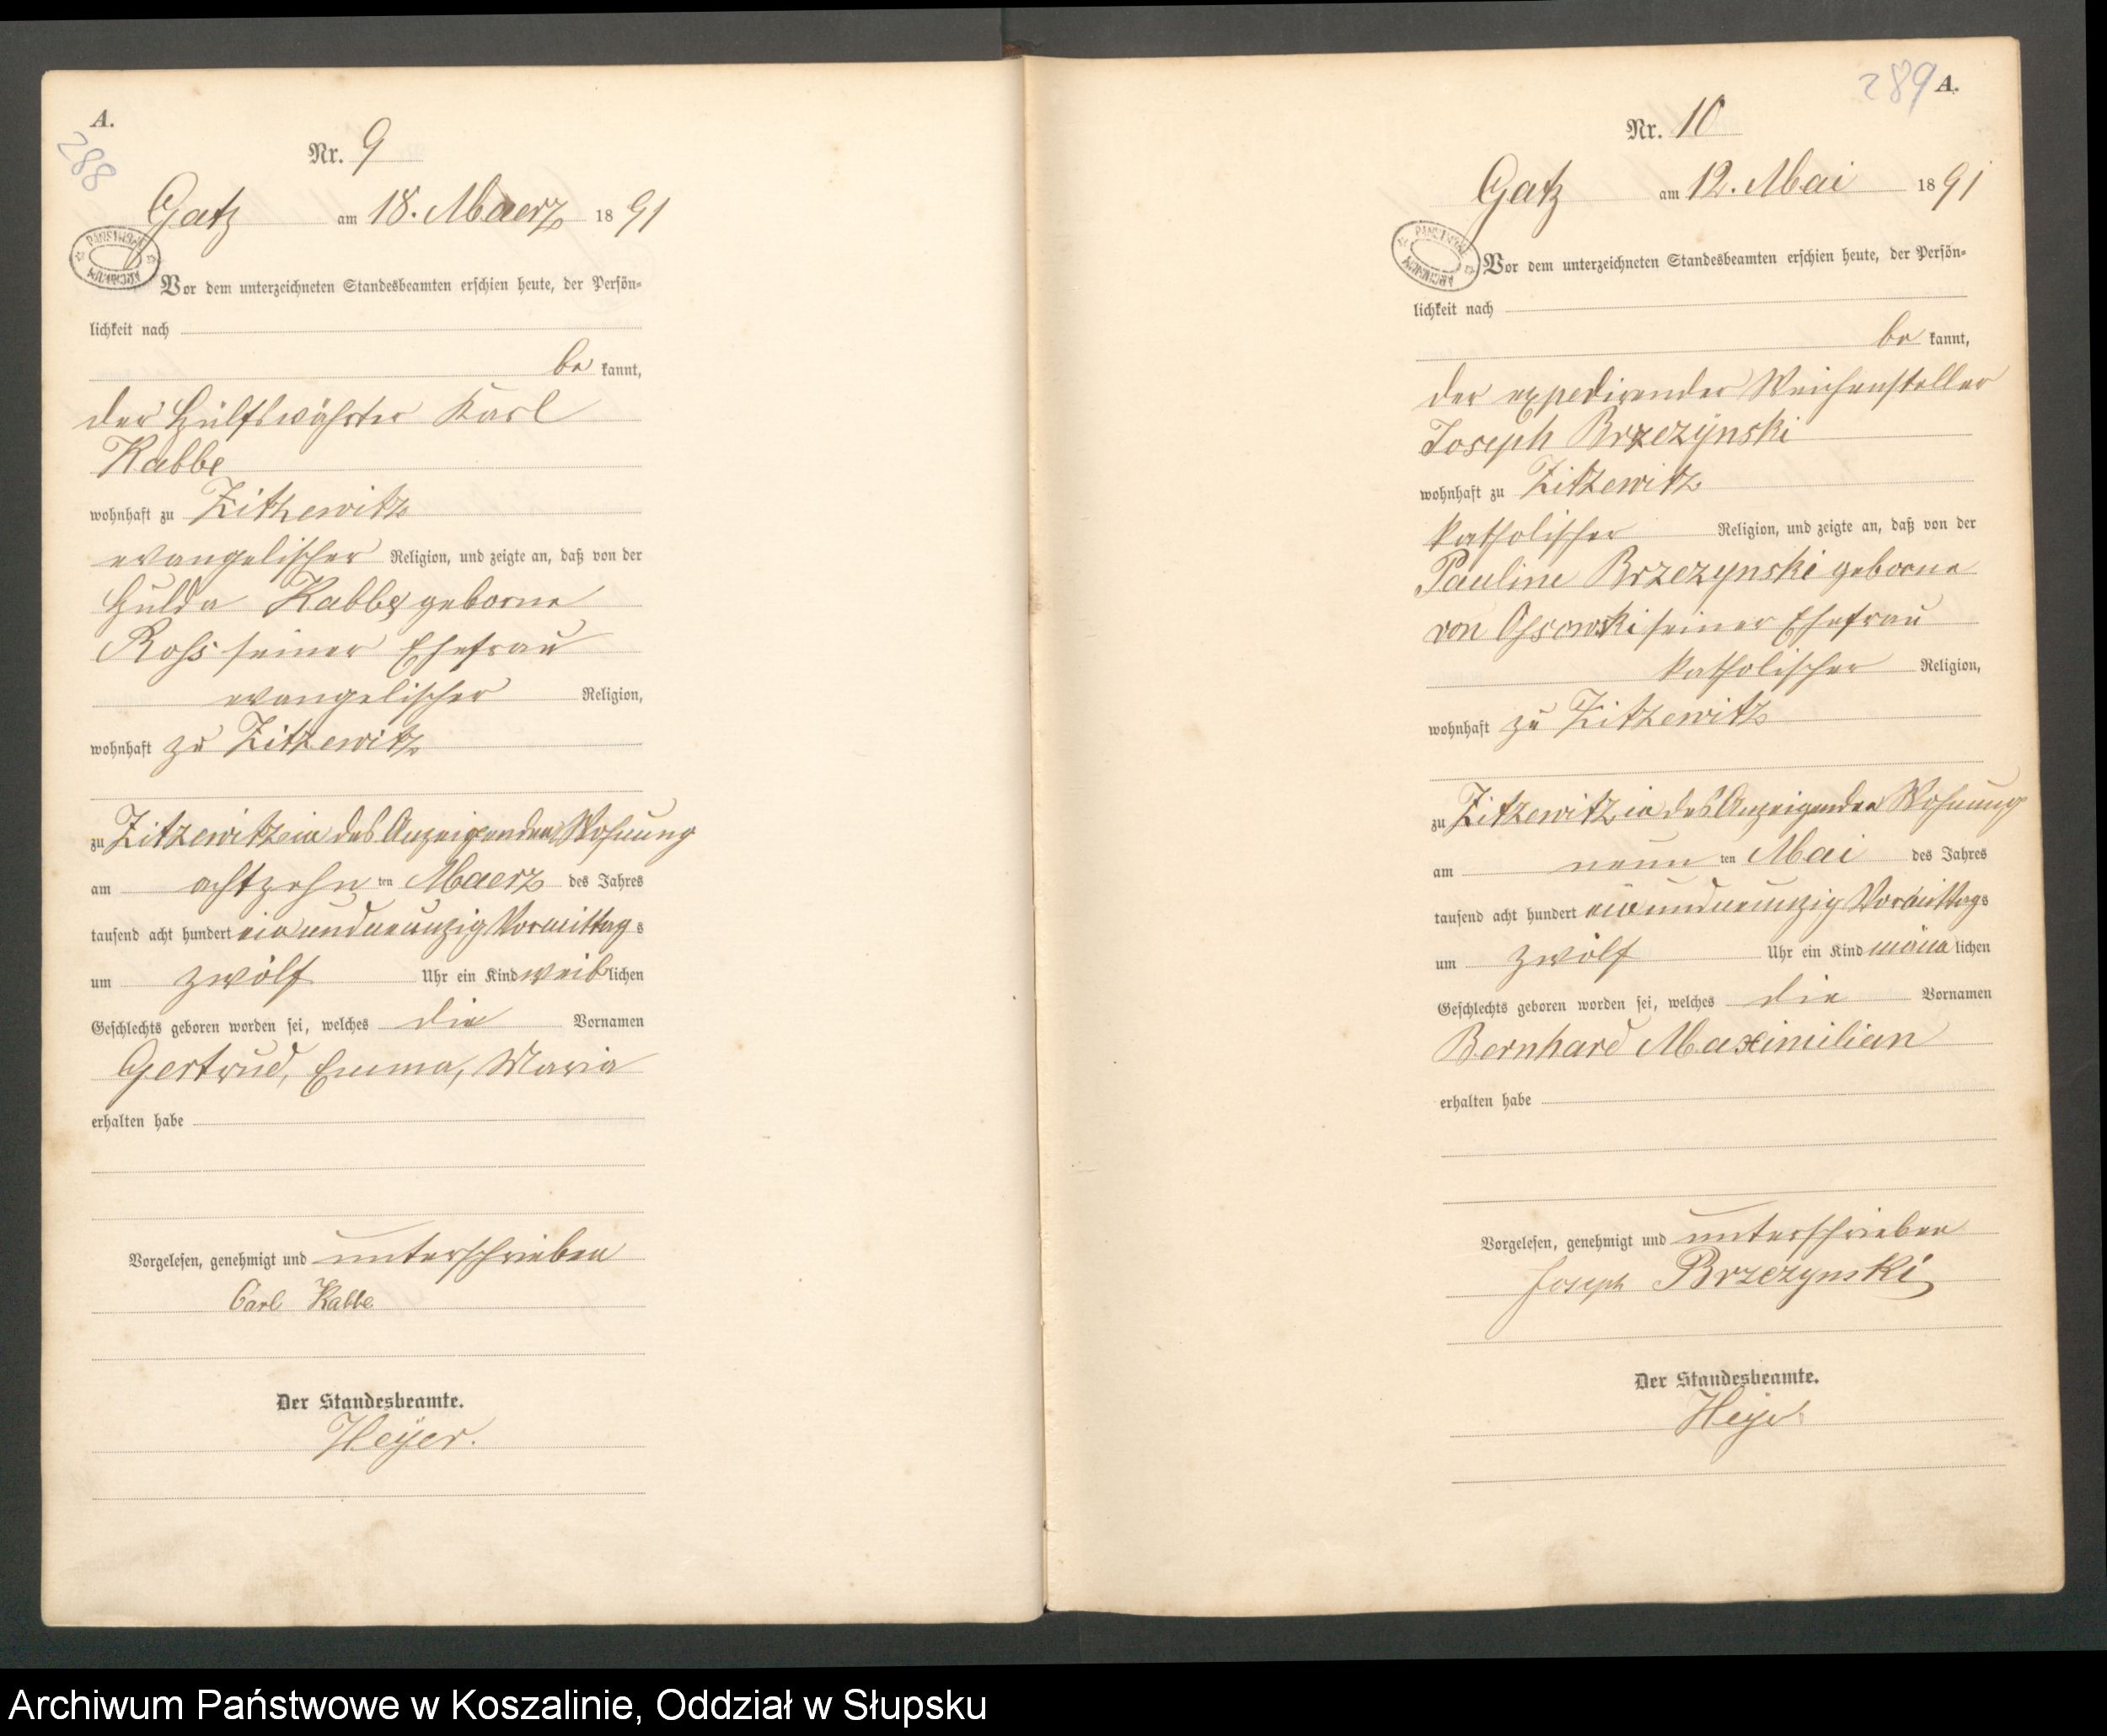 A.
288
Nr. 9
Gatz am 18. Maerz 1891
Vor dem unterzeichneten Standesbeamten erschien heute, der Persön-
lichkeit nach
be kannt,
der Hülfswächter Karl
Kabbe
wohnhaft zu Zitzewitz
evangelischer Religion, und zeigte an, daß von der
Hulda Kabbe geborne
Roß seiner Ehefrau
evangelischer Religion,
wohnhaft zu Zitzewitz
zu Zitzewitz in des Anzeigenden Wohnung
am achtzehn ten Maerz des Jahres
tausend acht hundert ein und neunzig Vormittags
um zwölf Uhr ein Kind weiblichen
Geschlechts geboren worden sei, welches die Vornamen
Gertrud, Emma, Maria
erhalten habe
Vorgelesen, genehmigt und unterschrieben
Carl Kabbe
Der Standesbeamte.
Heÿer.
289 A.
Nr. 10
Gatz am 12. Mai 1891
Vor dem unterzeichneten Standesbeamten erschien heute, der Persön-
lichkeit nach
be kannt,
der expedirender Weichensteller
Joseph Brzezÿnski
wohnhaft zu Zitzewitz
katholischer Religion, und zeigte an, daß von der
Pauline Brzezynski geborne
von Ossowski seiner Ehefrau
katholischer Religion,
wohnhaft zu Zitzewitz
zu Zitzewitz in des Anzeigenden Wohnung
am neun ten Mai des Jahres
tausend acht hundert ein und neunzig Vormittags
um zwölf Uhr ein Kind männlichen
Geschlechts geboren worden sei, welches die Vornamen
Bernhard Maximilian
erhalten habe
Vorgelesen, genehmigt und unterschrieben
Joseph Brzezynski
Der Standesbeamte.
Heyer
Archiwum Państwowe w Koszalinie, Oddział w Słupsku